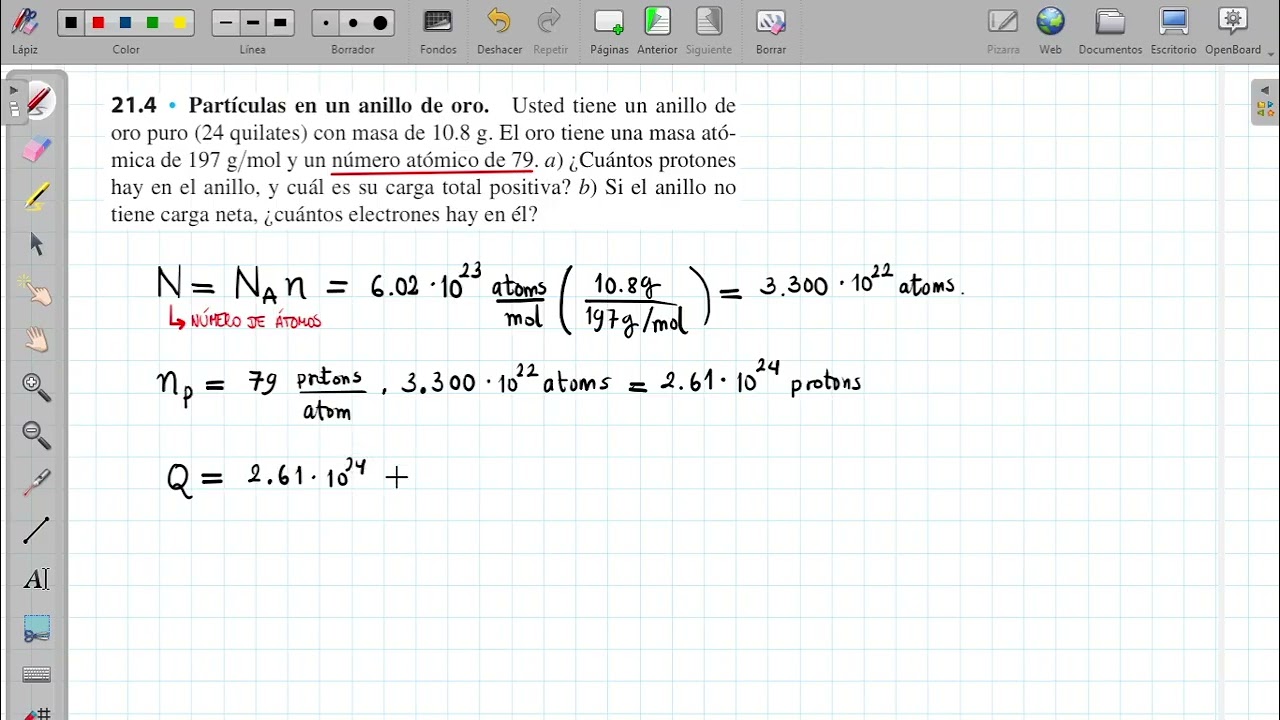 Lápiz Color Línea Borrador Fondos Deshacer Repetir Páginas Anterior Siguiente Borrar Pizarra Web Documentos Escritorio OpenBoard
21.4 • Partículas en un anillo de oro. Usted tiene un anillo de
oro puro (24 quilates) con masa de 10.8 g. El oro tiene una masa ató-
mica de 197 g/mol y un número atómico de 79. a) ¿Cuántos protones
hay en el anillo, y cuál es su carga total positiva? b) Si el anillo no
tiene carga neta, ¿cuántos electrones hay en él?
N = N_A n = 6.02 · 10^23 atoms/mol (10.8g / 197g/mol) = 3.300 · 10^22 atoms.
↳ NÚMERO DE ÁTOMOS
n_p = 79 prtons/atom . 3.300 · 10^22 atoms = 2.61 · 10^24 protons
Q = 2.61 · 10^24 +
AI